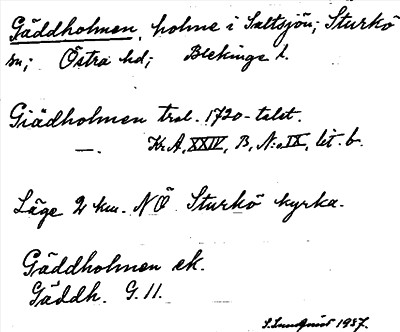 Gäddholmen, holme i Saltsjön; Sturkö
sn; Östra hd; Blekinge l.
Giädholmen trol. 1720-talet.
—. Kr.A, XXIV, B, N:o IX, lit. b.
Läge 2 km. NÖ Sturkö kyrka.
Gäddholmen ek.
Gäddh. G. 11.
S. Lundquist 1937.